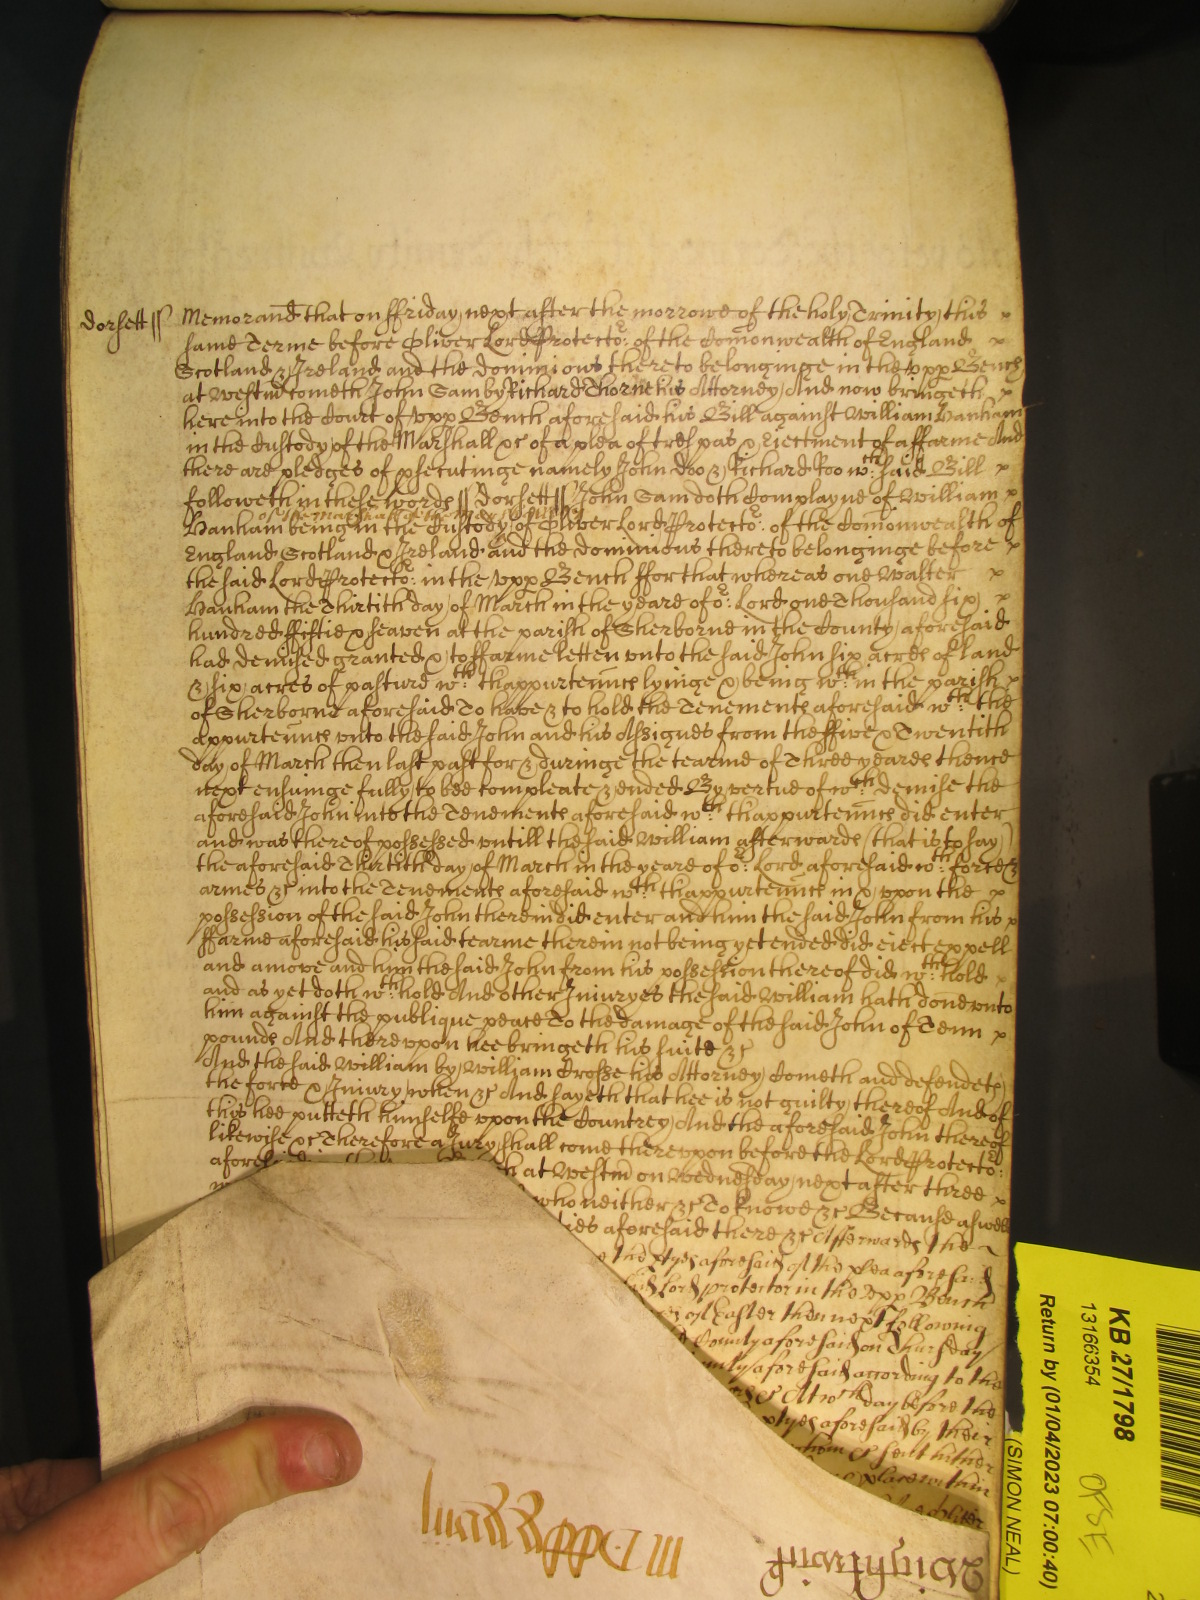 dorsett ss Memorand that on ffriday next after the morrowe of the holy Trinity this
same Terme before Oliver Lord Protector: of the Comonwealth of England
Scotland & Ireland and the dominions thereto belonginge in the upp Bench
at Westm cometh John Sam by Richard Thorne his Attorney And now bringeth
here into the Court of upp Bench aforesaid his Bill against William Hanham
in the Custody of the Marshall &c of a plea of trespas & Ejectment of a ffarme And
there are pledges of psecutinge namely John doo & Richard Roo wth: said Bill
followeth in these words ss dorsett ss John Sam doth Complayne of William
Hanham being in the Custody of Oliver Lord Protector: of the Comonwealth of
England Scotland & Ireland and the dominions thereto belonginge before
the said Lord Protector: in the upp Bench ffor that whereas one Walter
Hanham the Thirtith day of March in the yeare of or: Lord one Thousand six
hundred ffiftie & seaven at the parish of Sherborne in the County aforesaid
had demised granted & to ffarme letten unto the said John six acres of land
& six acres of pasture wth: thappurtennces lyinge & being wth: in the parish
of Sherborne aforesaid To have & to hold the Tenements aforesaid wth: the
appurtennces unto the said John and his Assignes from the ffive & Twentith
day of March then last past for & duringe the tearme of Three yeares thence
next ensuinge fully to bee compleate & ended By vertue of wch: demise the
aforesaid John into the Tenements aforesaid wth: thappurtennces did enter
and was thereof possessed untill the said William afterwards (that is to say)
the aforesaid Thirtith day of March in the yeare of or: Lord aforesaid wth: force &
armes &c into the Tenements aforesaid wth: thappurtennces in & uppon the
possession of the said John therein did enter and him the said John from his
ffarme aforesaid his said tearme therein not being yet ended did eiect expell
and amove and him the said John from his possession thereof did wth: hold
and as yet doth wth: hold And other Iniuryes the said William hath done unto
him against the publique peace To the damage of the said John of Tenn
pounds And thereuppon hee bringeth his suite &c
And the said William by William Crosse his Attorney Cometh and defendeth
the force & Iniury when &c And sayeth that hee is not guilty thereof And of
this hee putteth himselfe uppon the Countrey And the aforesaid John thereof
likewise &c Therefore a Jury shall come thereuppon before the Lord Protector:
afores at Westm on Wednesday next after three
who neither &c To knowe &c Because aswell
ties aforesaid there &c Afterwards the
the ptyes aforesaid of the plea aforesaid
said Lord protector in the upp Bench
of Easter then next following
County aforesaid on Thursday
unty aforesaid according to the
&c At wch day before the
ptyes aforesaid by their
whom &c sent hither
place within
Wightwick
KB 27/1798
13166354
Return by (01/04/2023 07:00:40)
(SIMON NEAL)